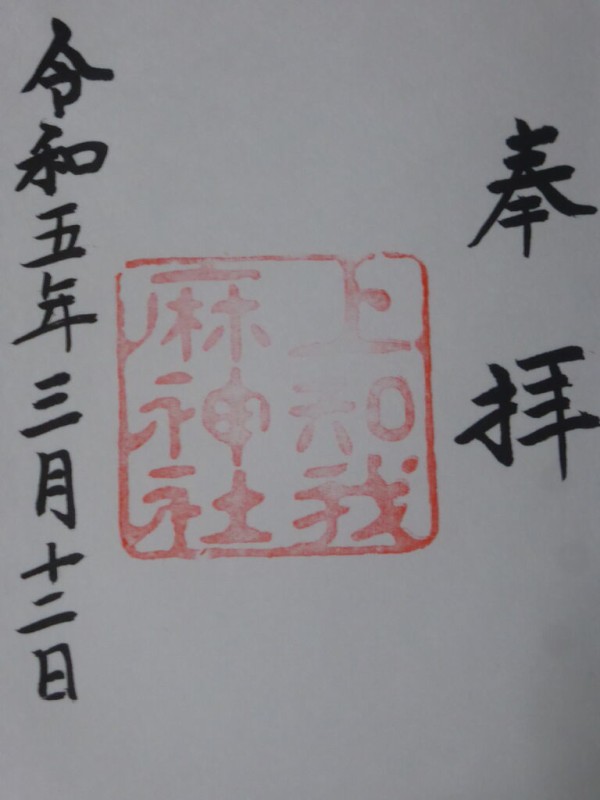 奉拝
上知我
麻神社
令和五年三月十二日